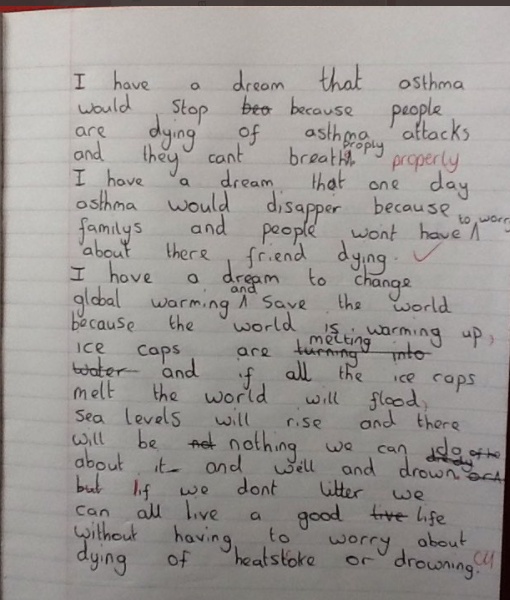 I have a dream that asthma
would stop because people
are dying of asthma attacks
and they cant breath proply properly
I have a dream that one day
asthma would disapper because
familys and people wont have to worry
about there friend dying.
I have a dream to change
global warming and save the world
because the world is warming up,
ice caps are melting
and if all the ice caps
melt the world will flood,
sea levels will rise and there
will be nothing we can do
about it and we'll and drown
but if we dont litter we
can all live a good life
without having to worry about
dying of heatstoke or drowning.